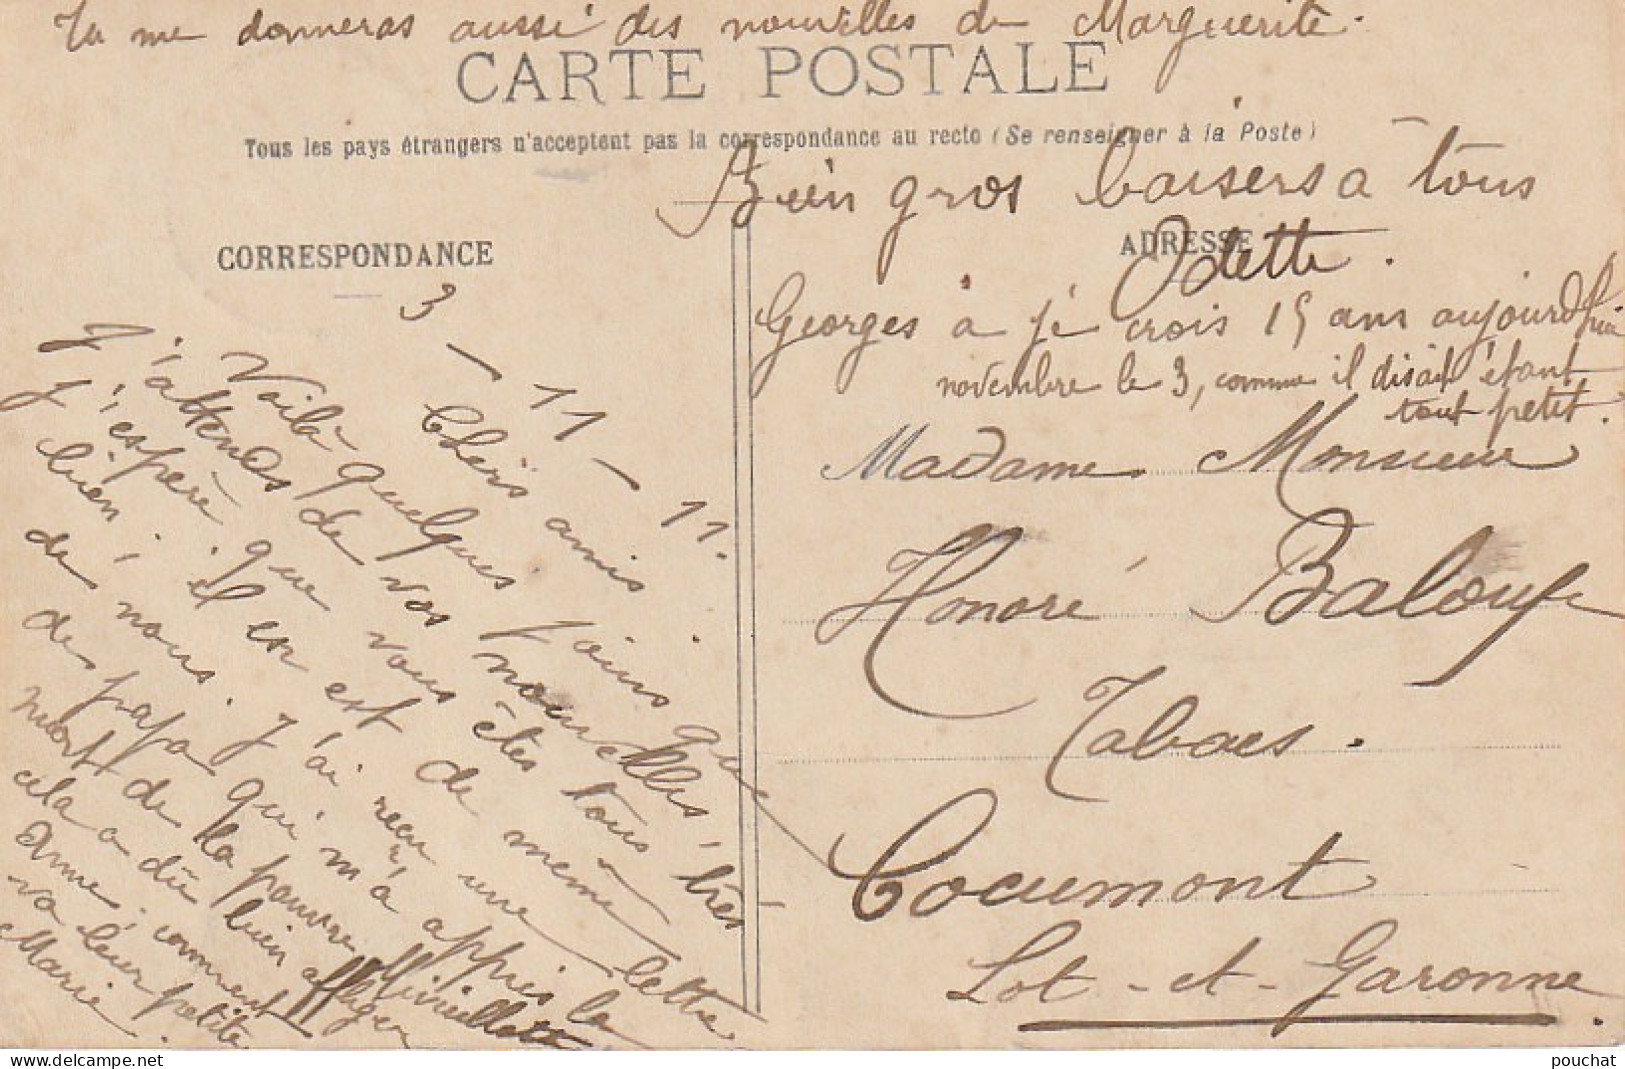 Tu me donneras aussi des nouvelles de Marguerite.
CARTE POSTALE
Tous les pays étrangers n'acceptent pas la correspondance au recto (Se renseigner à la Poste)
Bien gros baisers à tous
CORRESPONDANCE
ADRESSE
Odette.
Georges a je crois 15 ans aujourd'hui
novembre le 3, comme il disait étant
tout petit.
3 - 11 - 11.
Chers amis
Voilà quelques jours que
J'attends de vos nouvelles, très
J'espère que vous êtes tous
bien; il en est de même
de nous. J'ai reçu une lettre
de papa qui m'a appris la
mort de la pauvre
cela a dû bien affliger
Anne; comment
va leur petite
Marie.
Madame Monsieur
Honoré
Tabacs.
Cocumont
Lot-et-Garonne.
pouchat